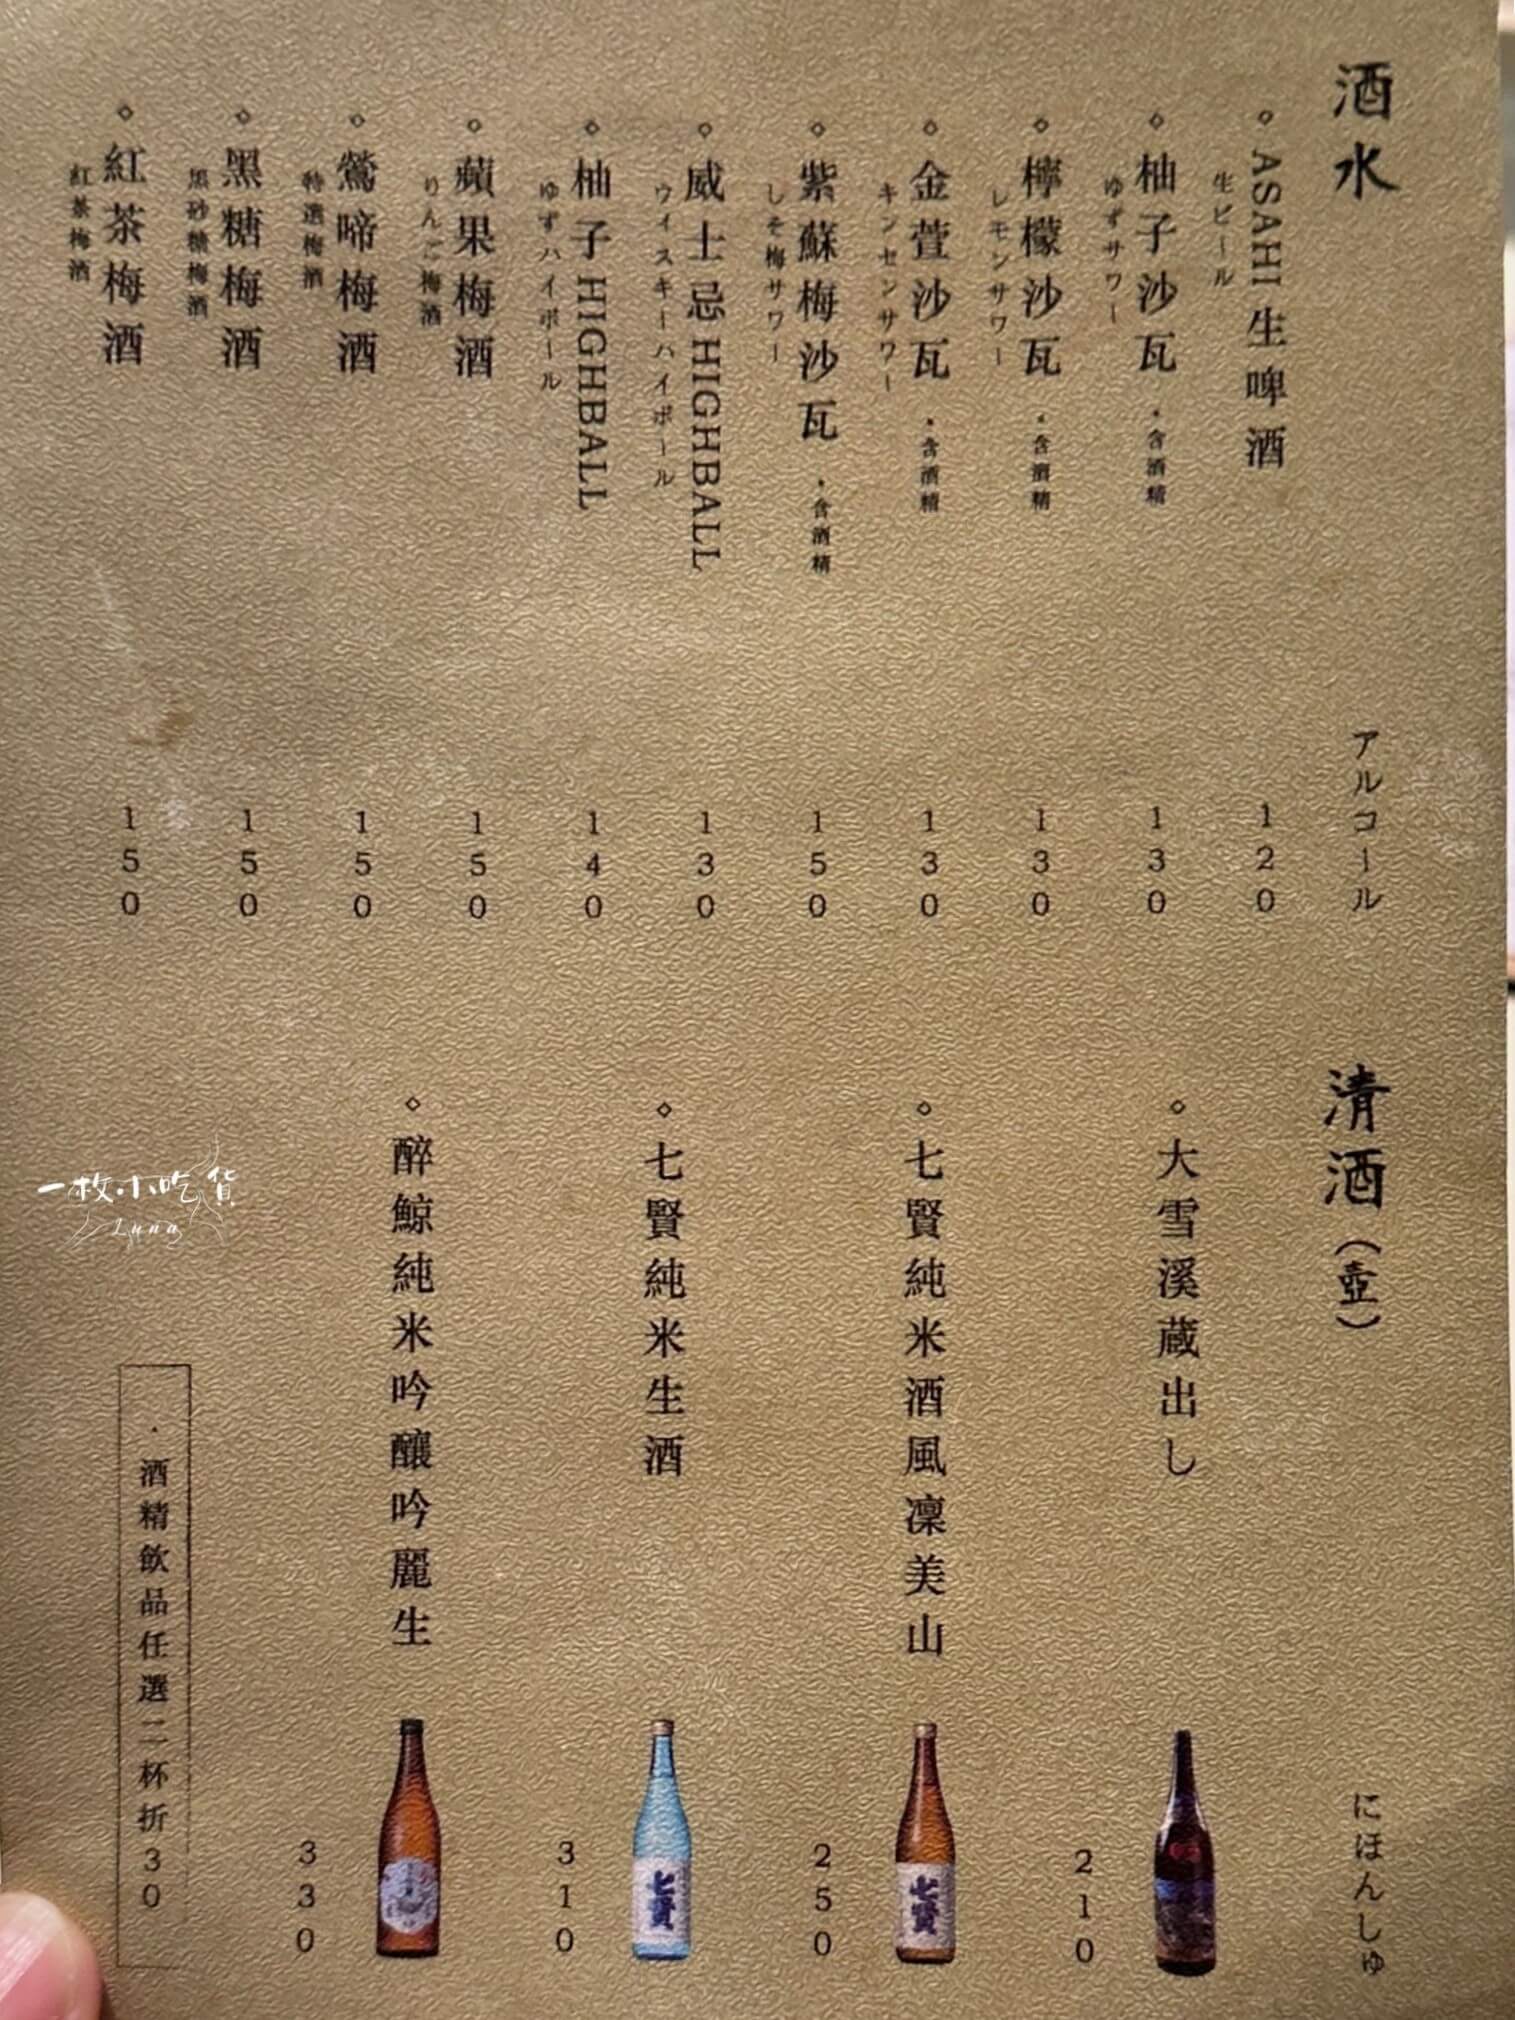 酒水
アルコール
ASAHI 生啤酒
生ビール
120
柚子沙瓦 ・含酒精
ゆずサワー
130
檸檬沙瓦 ・含酒精
レモンサワー
130
金萱沙瓦 ・含酒精
キンセンサワー
130
紫蘇梅沙瓦 ・含酒精
しそ梅サワー
150
威士忌 HIGHBALL
ウイスキーハイボール
130
柚子 HIGHBALL
ゆずハイボール
140
蘋果梅酒
りんご梅酒
150
鶯啼梅酒
特選梅酒
150
黑糖梅酒
黒砂糖梅酒
150
紅茶梅酒
紅茶梅酒
150
清酒（壺）
にほんしゅ
大雪溪蔵出し
210
七賢純米酒風凜美山
七賢
250
七賢純米生酒
七賢
310
醉鯨純米吟釀吟麗生
330
・酒精飲品任選二杯折30
一枚小吃貨
Luna